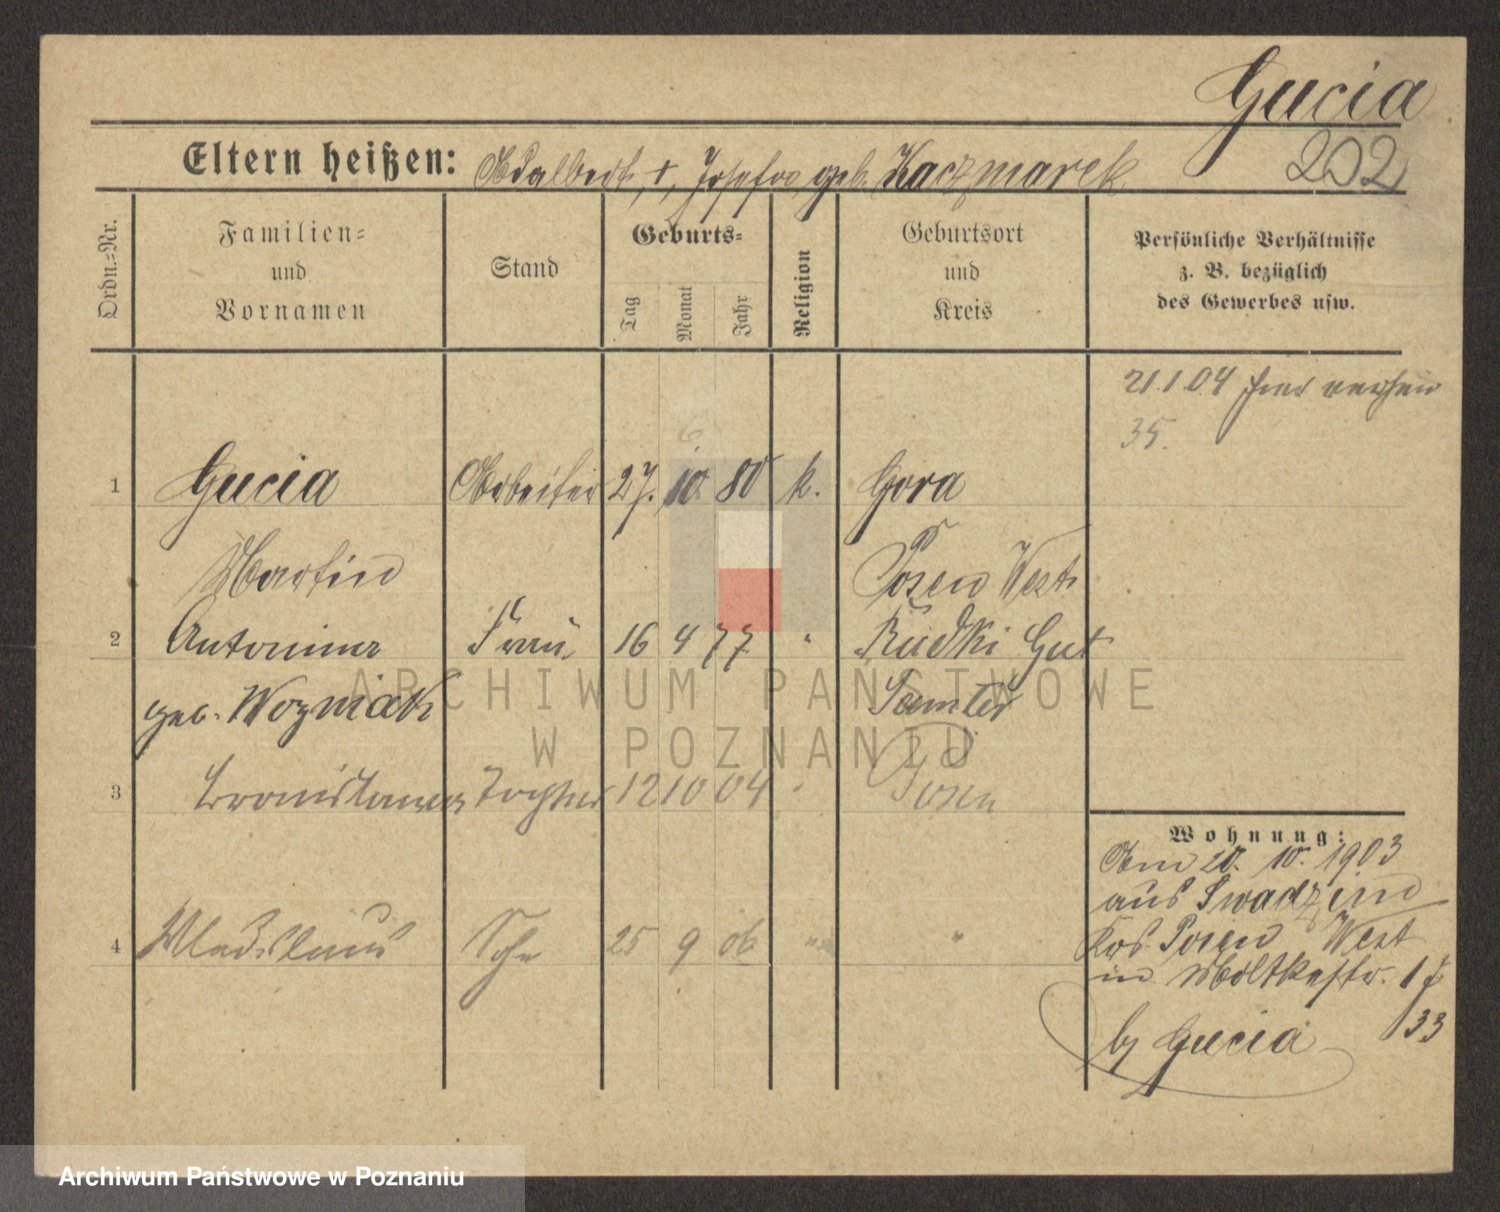 Gucia
202
Eltern heißen: Adalbert, †, Josefa, geb. Kaczmarek
Ordn.-Nr.
Familien-
und
Vornamen
Stand
Geburts-
Tag
Monat
Jahr
Religion
Geburtsort
und
Kreis
Persönliche Verhältnisse
z. B. bezüglich
des Gewerbes usw.
21.1.04
35.
6
1 Gucia Arbeiter 27. 10. 80 k. Gora
Martin Posen West
2 Antonina Frau 16 4 77 " Rudki Gut
geb. Wozniak Samter
3 Bronislawa Tochter 12 10 04 " Posen
4 Wladislaus Sohn 25 9 06 " "
Wohnung:
Am 20. 10. 1903
aus Swadzim
Krs Posen West
in Moltkestr.
33
by Gucia
ARCHIWUM PAŃSTWOWE
W POZNANIU
Archiwum Państwowe w Poznaniu